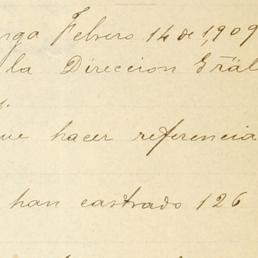 nga Febrero 14 de 1,909
la Direccion Gräl
que hacer referencia
han castrado 126